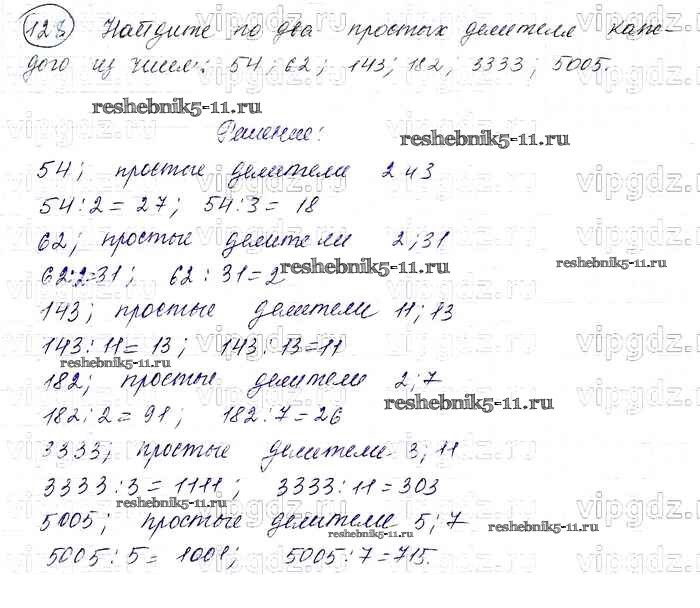 128 Найдите по два простых делителя каж-
дого из чисел: 54; 62; 143; 182; 3333; 5005.
reshebnik5-11.ru
Решение:
reshebnik5-11.ru
54; простые делители 2 и 3
54:2=27; 54:3=18
62; простые делители 2; 31
62:2=31; 62:31=2
reshebnik5-11.ru
reshebnik5-11.ru
143; простые делители 11; 13
143:11=13; 143:13=11
reshebnik5-11.ru
182; простые делители 2; 7
182:2=91; 182:7=26
reshebnik5-11.ru
3333; простые делители 3; 11
3333:3=1111; 3333:11=303
reshebnik5-11.ru
5005; простые делители 5; 7
reshebnik5-11.ru
5005:5=1001; 5005:7=715.
vipgdz.ru
vipgdz.ru
vipgdz.ru
vipgdz.ru
vipgdz.ru
vipgdz.ru
vipgdz.ru
vipgdz.ru